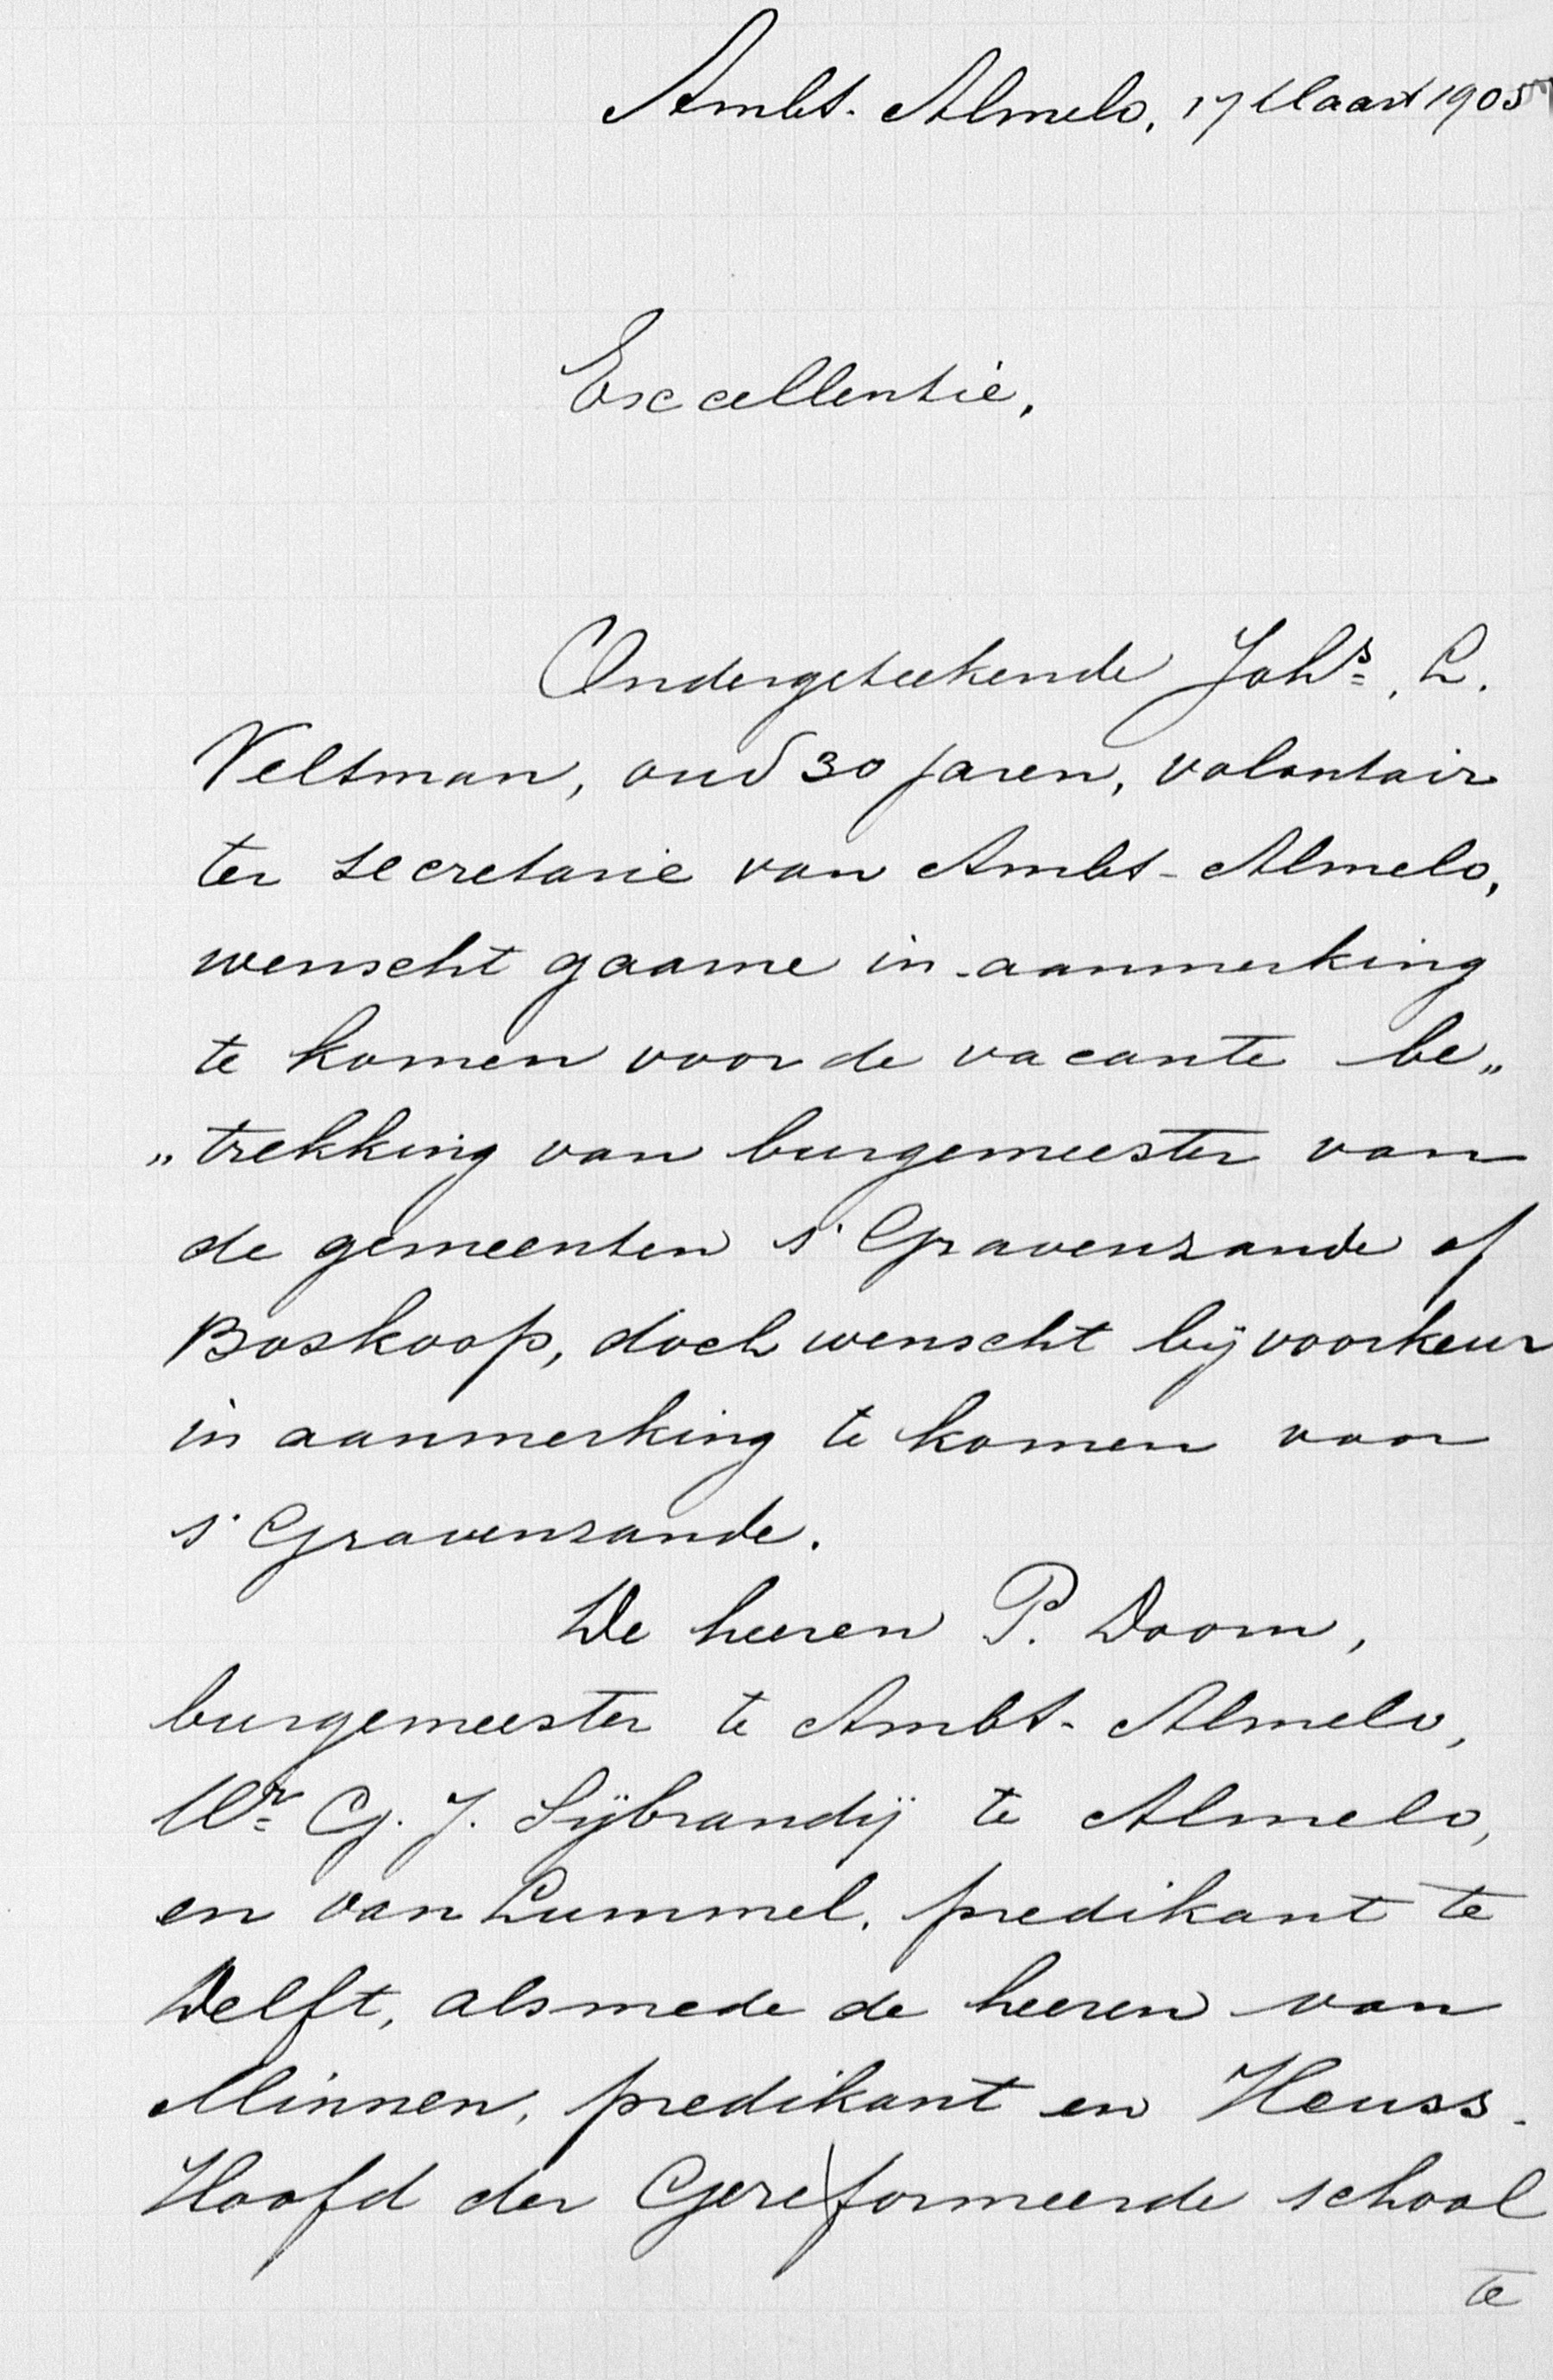 Ambt-Almelo, 17 Maart 1905
Excellentie,
Ondergeteekende Joh^s. L.
Veltman, oud 30 jaren, volontair
ter secretarie van Ambt-Almelo,
wenscht gaarne in aanmerking
te komen voor de vacante be„
„trekking van burgemeester van
de gemeenten s'Gravenzande of
Boskoop, doch wenscht bij voorkeur
in aanmerking te komen voor
s'Gravenzande.
De heeren P. Doorn,
burgemeester te Ambt-Almelo,
M^r. G. J. Sÿbrandÿ te Almelo,
en van Lummel, predikant te
Delft, alsmede de heeren van
Minnen, predikant en Heuss-
Hoofd der Gereformeerde school
te